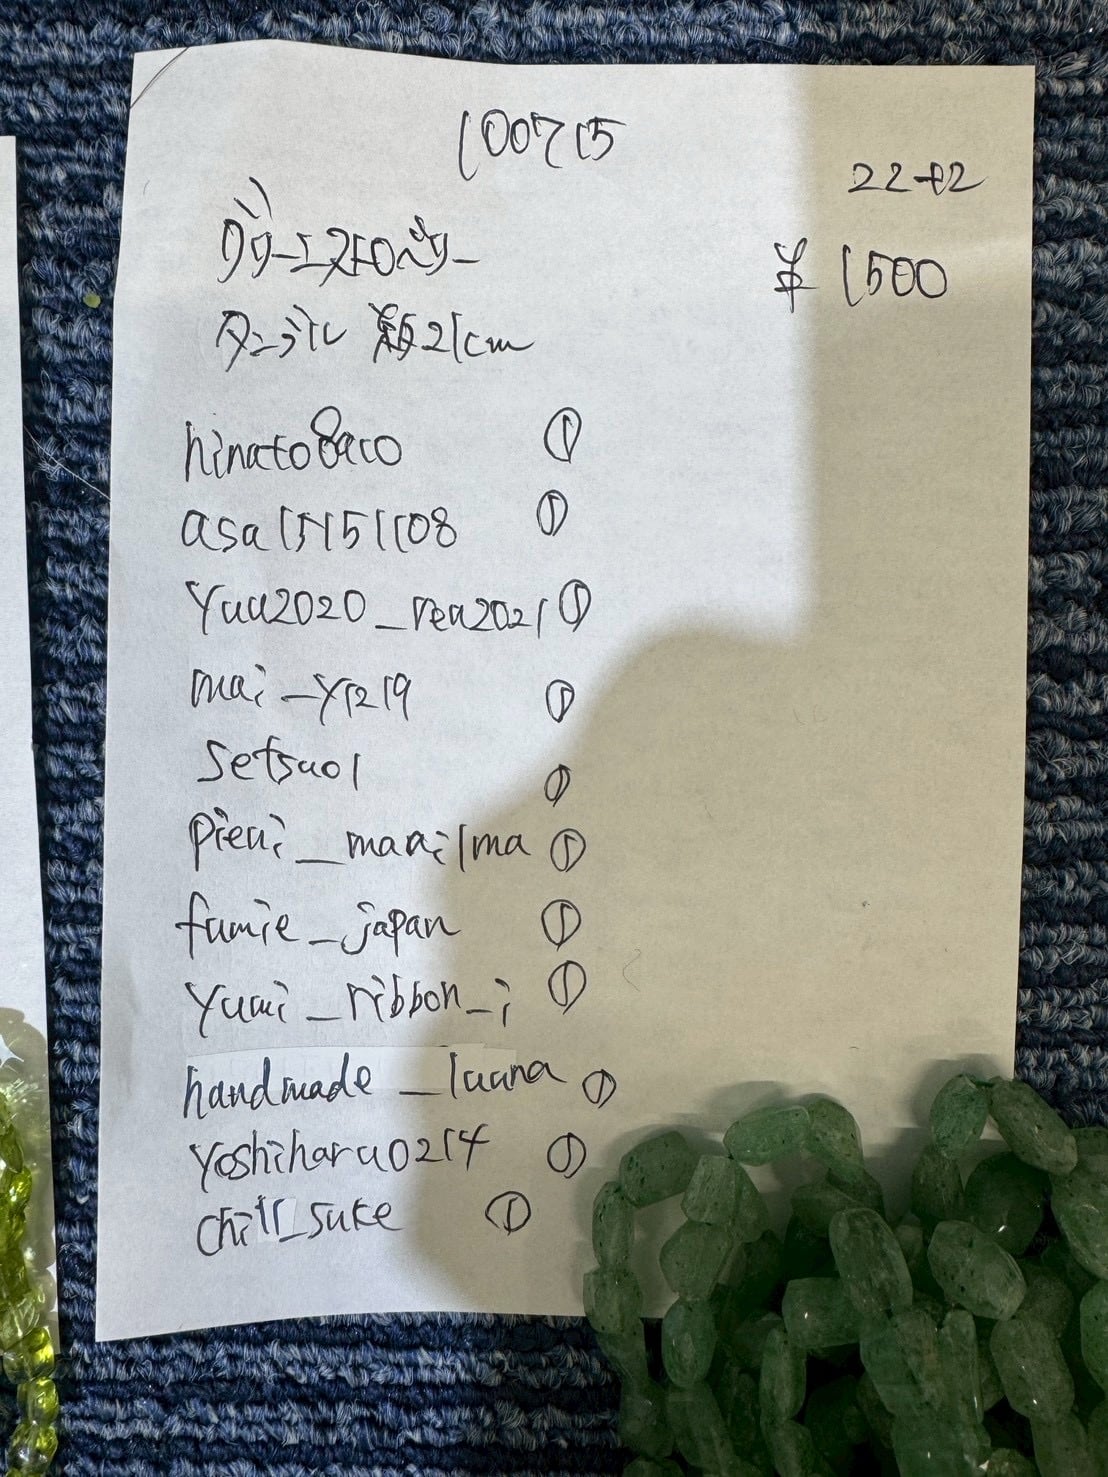 100715
22-42
グリーンストロベリー
¥1500
タンブル 類21cm
hinato8aco
①
asa15151108
①
Yua2020_rea2021 ①
mai_y1219
①
setsuo1
①
pieni_maailma ①
fumie_japan
①
Yumi_ribbon_i
①
handmade_luana ①
Yoshiharu0214
①
chill_suke
①